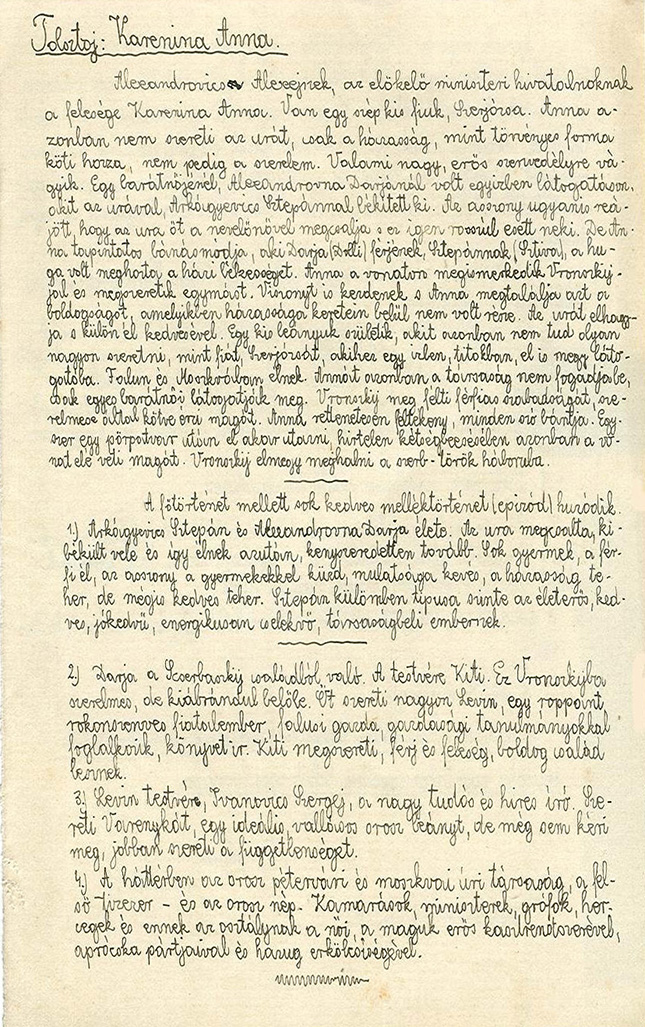 Tolsztoj: Karenina Anna.
Alexandrovics Alexejnek, az előkelő miniszteri hivatalnoknak
a felesége Karenina Anna. Van egy szép kis fiuk, Szerjózsa. Anna a-
zonban nem szereti az urát, csak a házasság, mint törvényes forma
köti hozzá, nem pedig a szerelem. Valami nagy, erős szenvedélyre vá-
gyik. Egy barátnőjénél, Alexandrovna Darjánál volt egyizben látogatáson,
akit az urával, Arkágyevics Sztepánnal békitett ki. Az asszony ugyanis reá-
jött, hogy az ura őt a nevelőnővel megcsalja s ez igen rosszúl esett neki. De An-
na tapintatos bánásmódja, aki Darja (Dolli) férjének, Sztepánnak (Sztiva), a hu-
ga volt meghozta a házi békességet. Anna a vonaton megismerkedik Vronszkij-
jal és megszeretik egymást. Viszonyt is kezdenek s Anna megtalálja azt a
boldogságot, amelyikben házassága keretein belül nem volt része. Az urát elhagy-
ja s külön él kedvesével. Egy kis leányuk születik, akit azonban nem tud olyan
nagyon szeretni, mint fiát, Szerjózsát, akihez egy izben, titokban, el is megy láto-
gatóba. Falun és Moszkvában élnek. Annát azonban a társaság nem fogadja be,
csak egyes barátnői látogatják meg. Vronszkij meg félti férfias szabadságát, sze-
relmese által kötve érzi magát. Anna rettenetesen féltékeny, minden szó bántja. Egy-
szer egy pörpatvar után el akar utazni, hirtelen kétségbeesésében azonban a vo-
nat elé veti magát. Vronszkij elmegy meghalni a szerb-török háboruba.
A főtörténet mellett sok kedves melléktörténet (epizód) huzódik.
1.) Arkágyevics Sztepán és Alexandrovna Darja élete. Az ura megcsalta, ki-
békült vele és igy élnek azután, kényszeredetten tovább. Sok gyermek, a fér-
fi él, az asszony a gyermekekkel küzd, mulatsága kevés, a házasság te-
her, de mégis kedves teher. Sztepán külömben tipusa szinte az életerős, ked-
ves, jókedvű, energikusan cselekvő, társaságbeli embernek.
2.) Darja a Szcerbaszkij családból való. A testvére Kiti. Ez Vronszkijba
szerelmes, de kiábrándul belőle. Őt szereti nagyon Levin, egy roppant
rokonszenves fiatalember, falusi gazda, gazdasági tanulmányokkal
foglalkozik, könyvet ir. Kiti megszereti, férj és feleség, boldog család
lesznek.
3.) Levin testvére, Ivanovics Szergej, a nagy tudós és hires iró. Sze-
reti Varenykát, egy ideális, vallásos orosz leányt, de még sem kéri
meg, jobban szereti a függetlenséget.
4.) A háttérben az orosz pétervári és moszkvai úri társaság, a fel-
ső tizezer - és az orosz nép. Kamarások, miniszterek, grófok, her-
cegek és ennek az osztálynak a női, a maguk erős kasztrendszerével,
aprócska pártjaival és hazug erkölcsiségével.